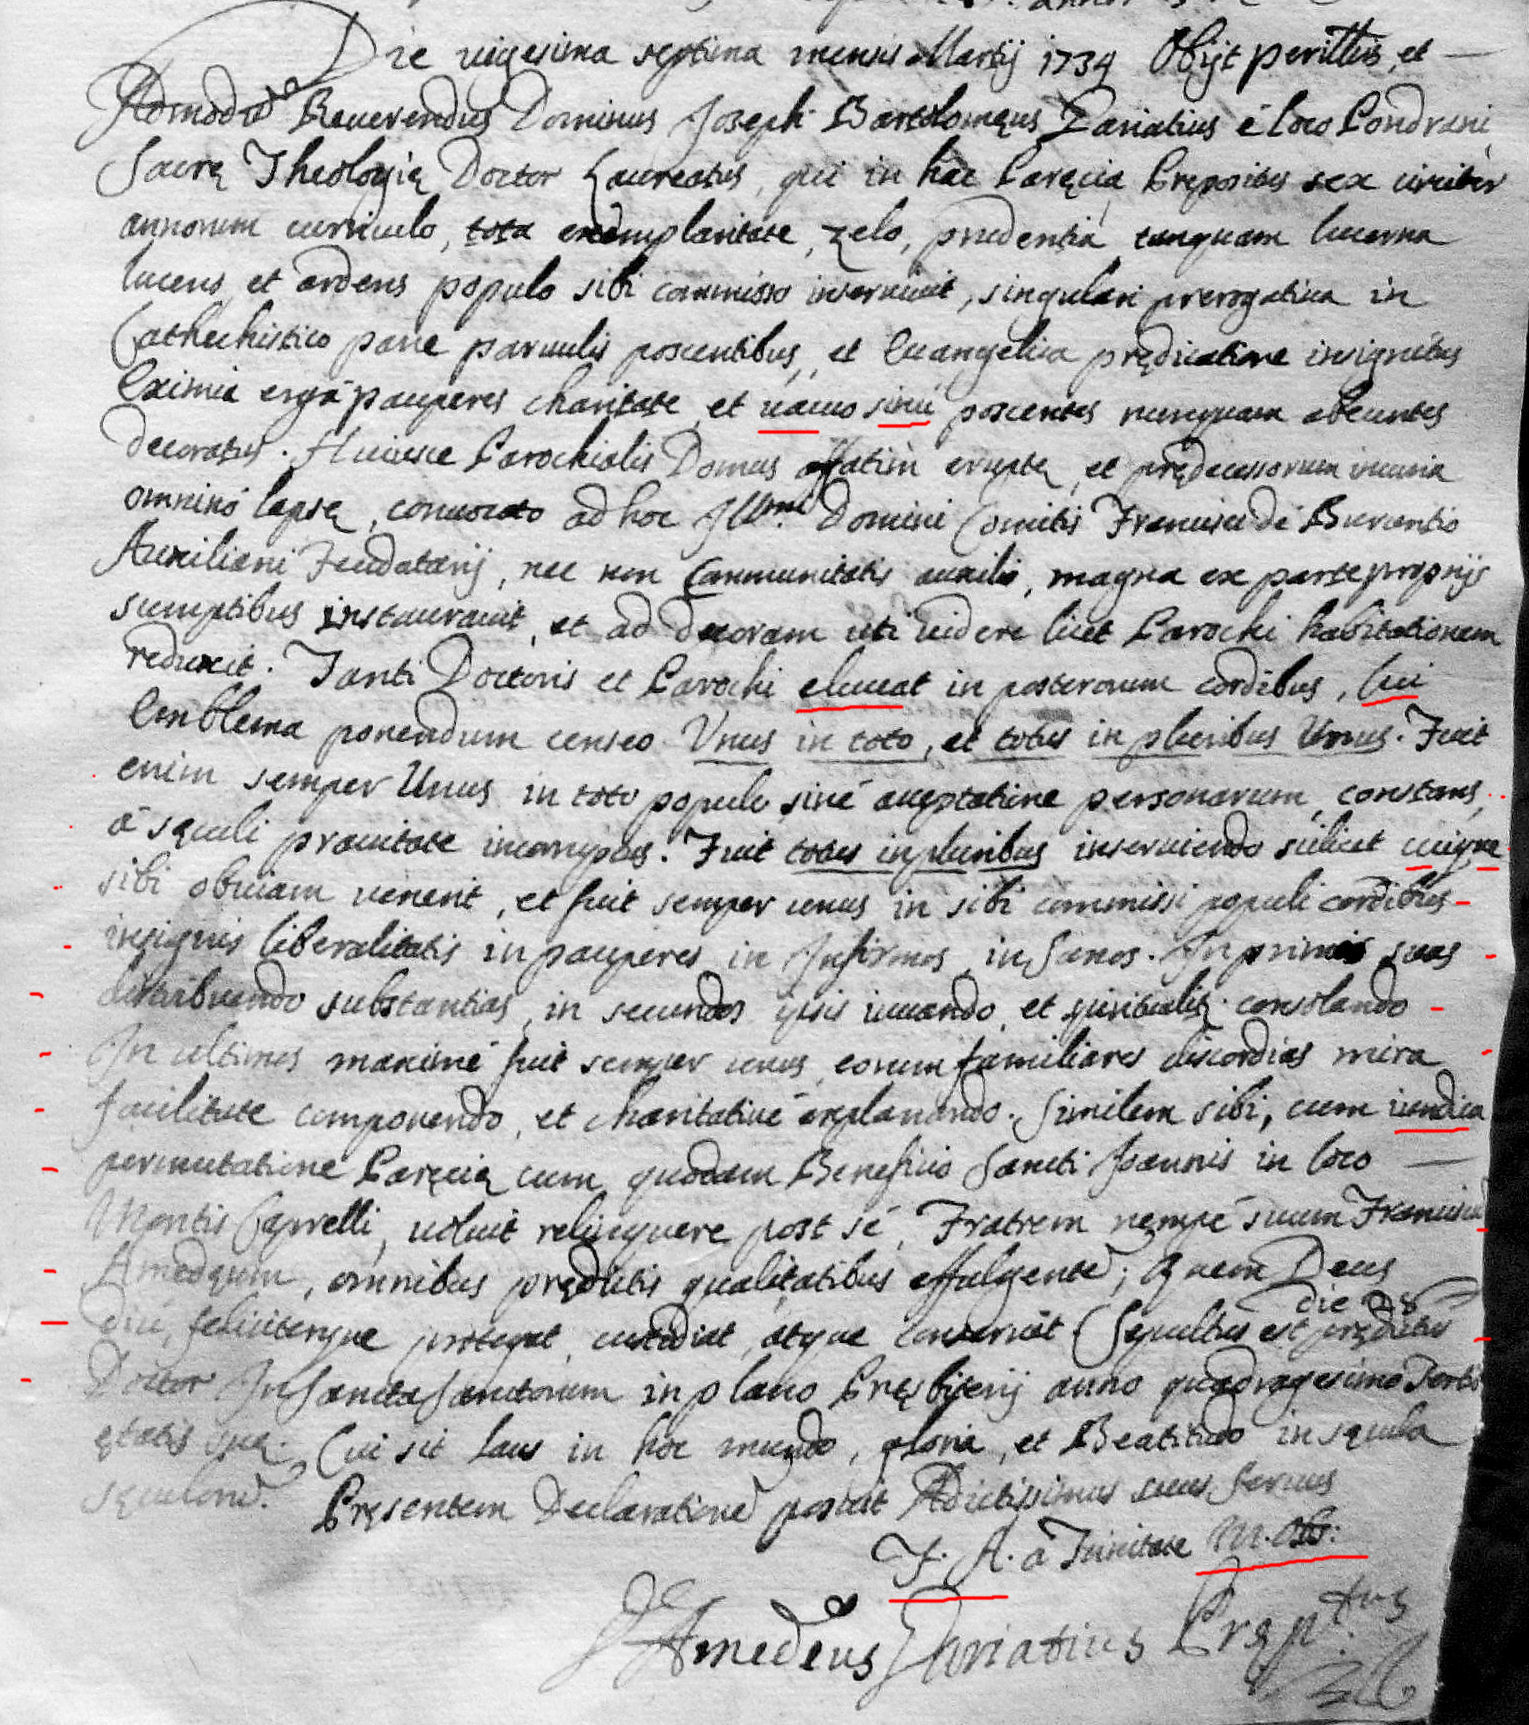 Die uigesima septima mensis Martij 1734 Obijt perillus, et
Admodũ Reuerendus Dominus Joseph Bartolomęus Pariatius è loco Condrani,
Sacrę Theologię Doctor Laureatus, qui in hac Paręcia Prępositus sex circiter
annorum curriculo, tota exemplaritate, zelo, prudentia tanquam lucerna
lucens, et ardens populo sibi commisso inseruiuit, singulari prerogatiua in
Cathechistico pane paruulis poscentibus, et Euangelica prędicatione insignitus
Eximia ergà pauperes charitate, et uacuo sinù poscentes nunquam abeuntes
decoratus. Huiusce Parochialis Domus affatim eruptę, et prędecessorum incuria
omninò lapsę, conuocato ad hoc Ill.mi Domini Comitis Francisci de Burontio
Auxiliani Feudatarij, nec non Communitatis auxilio, magna ex parte proprijs
sumptibus instaurauit, et ad decoram uti uidere licet Parochi habitationem
reduxit. Tanti Doctoris et Parochi eluceat in posterorum cordibus, Cui
Emblema ponendum censeo Vnus in toto, et totus in pluribus Unus. Fuit
enim semper Unus in toto populo sinè acceptatione personarum, constans,
à sęculi prauitate incorruptus. Fuit totus in pluribus inseruiendo scilicet cuique
sibi obuiam uenerit, et fuit semper unus in sibi commissi populi cordibus
insignis liberalitatis in pauperes, in Infirmos, in Sanos. In primis suas
distribuendo substantias, in secundos ipsis iuuando, et spiritualitę. consolando
In ultimos maximè fuit semper unus, eorum familiares discordias mira
facilitate componendo, et charitatiuè explanando. Similem sibi, cum iuridica
permutatione Paręcię cum quodam Beneficio Sancti Joannis in loco
Montis Caprelli, uoluit relinquere post sé, Fratrem nempè suum Franciscũ
Amedęum, omnibus prędictis qualitatibus effulgentẽ; Quem Deus
diù, feliciterque protegat, custodiat, atque conseruet. Sepultus est die 28 prędictus
Doctor In Sancta Sanctorum in plano Pręsbiterij anno quadragesimo Tertio
ętatis suę. Cui sit Laus in hoc mundo, gloria, et Beatitudo in sęcula
sęculorũ. Pręsentem Declarationẽ posuit Adictissimus suus seruus
F. A. à Trinitate M. Obs:
Amedeus Pariatius Pręp.tus